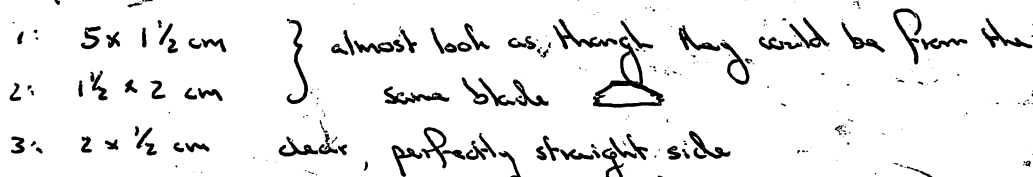 1: 5 x 1 1/2 cm } almost look as though they could be from the
2: 1 1/2 x 2 cm same blade
3: 2 x 1/2 cm clear, perfectly straight side